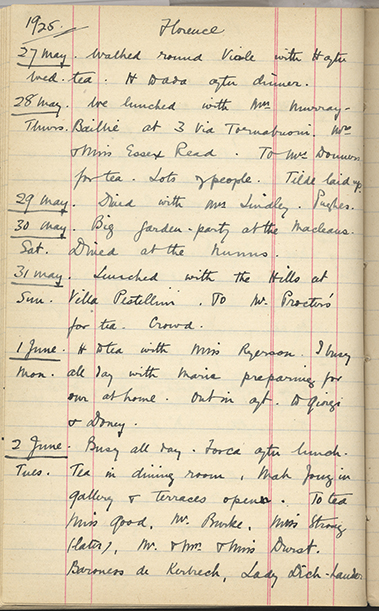 1925. Florence
27 May. Walked round Viale with H after
Wed. tea. H Dada after dinner.
28 May. We lunched with Mrs Murray-
Thurs. Baillie at 3 Via Tornabuoni. Mrs
& Miss Essex Read. To Mrs
for tea. Lots of people. Tilde laid up.
29 May. Dined with Mrs Lindley. Pughes.
30 May. Big garden-party at the Macleans.
Sat. Dined at the Nunns.
31 May. Lunched with the Hills at
Sun. Villa Pestellini. To Mr Proctors'
for tea. Crowd.
1 June. H to tea with Miss Ryerson. I busy
Mon. all day with Maria preparing for
our at home. Out in aft. to Giorgi
& Doney.
2 June. Busy all day. after lunch.
Tues. Tea in dining room, Mah Jong in
gallery & terraces open. To tea
Miss Good, Mr. Burke, Miss Strong
(later), Mr. & Mrs & Miss Durst.
Baroness de Kerbrech, Lady Dick-Lauder.